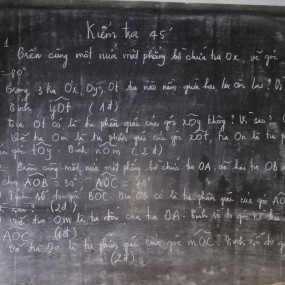 Kiểm tra 45'
1. Trên cùng một nửa mặt phẳng bờ chứa tia Ox, vẽ góc
80°
Trong 3 tia Ox, Oy, Ot tia nào nằm giữa hai tia còn lại? Vì
Tính yOt (1đ)
Tia Ot có là tia phân giác của góc xOy không? Vì sao?
Vẽ tia Om là tia phân giác của góc xOt, tia On là tia p
góc tOy. Tính nOm (2đ)
Trên cùng một nửa mặt phẳng bờ chứa tia OA, vẽ hai tia OB
cho AOB = 30° AOC =
Tính số đo góc BOC. Tia OB có là tia phân giác của góc AO
(2đ)
Vẽ tia Om là tia đối của tia OA. Tính số đo góc kề
AOC (1đ)
Vẽ tia On là tia phân giác của góc mOC. Tính số đo g
(2đ)